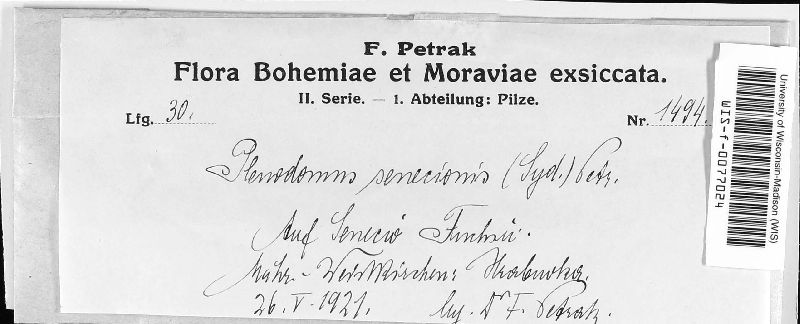 F. Petrak
Flora Bohemiae et Moraviae exsiccata.
II. Serie. — 1. Abteilung: Pilze.
Lfg. 30. Nr. 1494.
Plenodomus senecionis (Syd.) Petr.
Auf Senecio Fuchsii.
Mähr.-Weisskirchen: Hrabuvka.
26. V. 1921. leg. Dr F. Petrak.
University of Wisconsin-Madison (WIS)
WIS-f-0077024